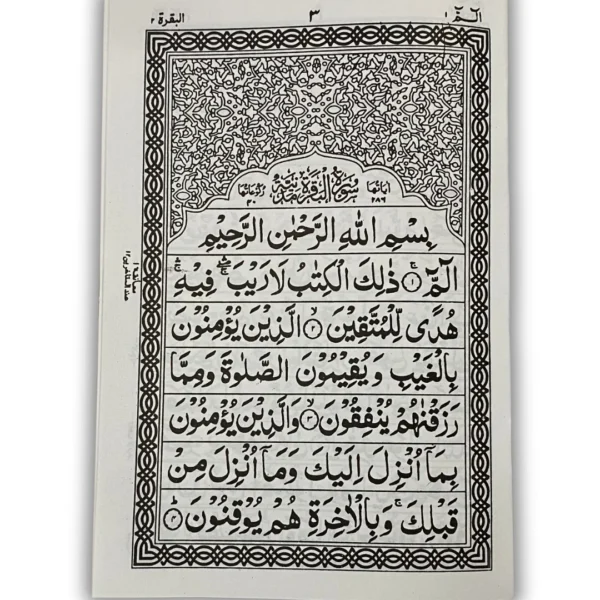 الٓمّٓ ١
٣
البقرة ٢
اٰیاتها ٢٨٦
سُوْرَةُ الْبَقَرَةِ مَدَنِيَّةٌ
رکوعاتها ٤٠
بِسْمِ اللهِ الرَّحْمٰنِ الرَّحِيْمِ
الٓمّٓ ۚ﴿١﴾ ذٰلِكَ الْكِتٰبُ لَا رَيْبَ ۛۖ فِيْهِ ۛۚ
هُدًى لِّلْمُتَّقِيْنَ ۙ﴿٢﴾ الَّذِيْنَ يُؤْمِنُوْنَ
بِالْغَيْبِ وَيُقِيْمُوْنَ الصَّلٰوةَ وَمِمَّا
رَزَقْنٰهُمْ يُنْفِقُوْنَ ۙ﴿٣﴾ وَالَّذِيْنَ يُؤْمِنُوْنَ
بِمَاۤ اُنْزِلَ اِلَيْكَ وَمَاۤ اُنْزِلَ مِنْ
قَبْلِكَ ۚ وَبِالْاٰخِرَةِ هُمْ يُوْقِنُوْنَ ؕ﴿٤﴾
معانقة ١
عند المتاخرين ١٢